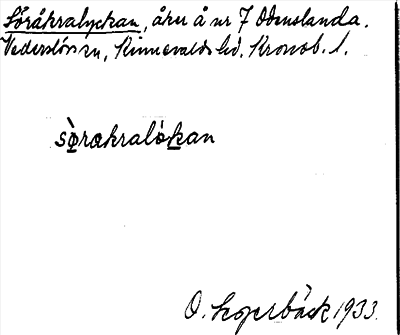 Söråkralyckan, åker å nr 7 Odenslanda.
Vederslövs sn, Kinnevalds hd. Kronob. l.
sø̀rakralókan
O. 1933.